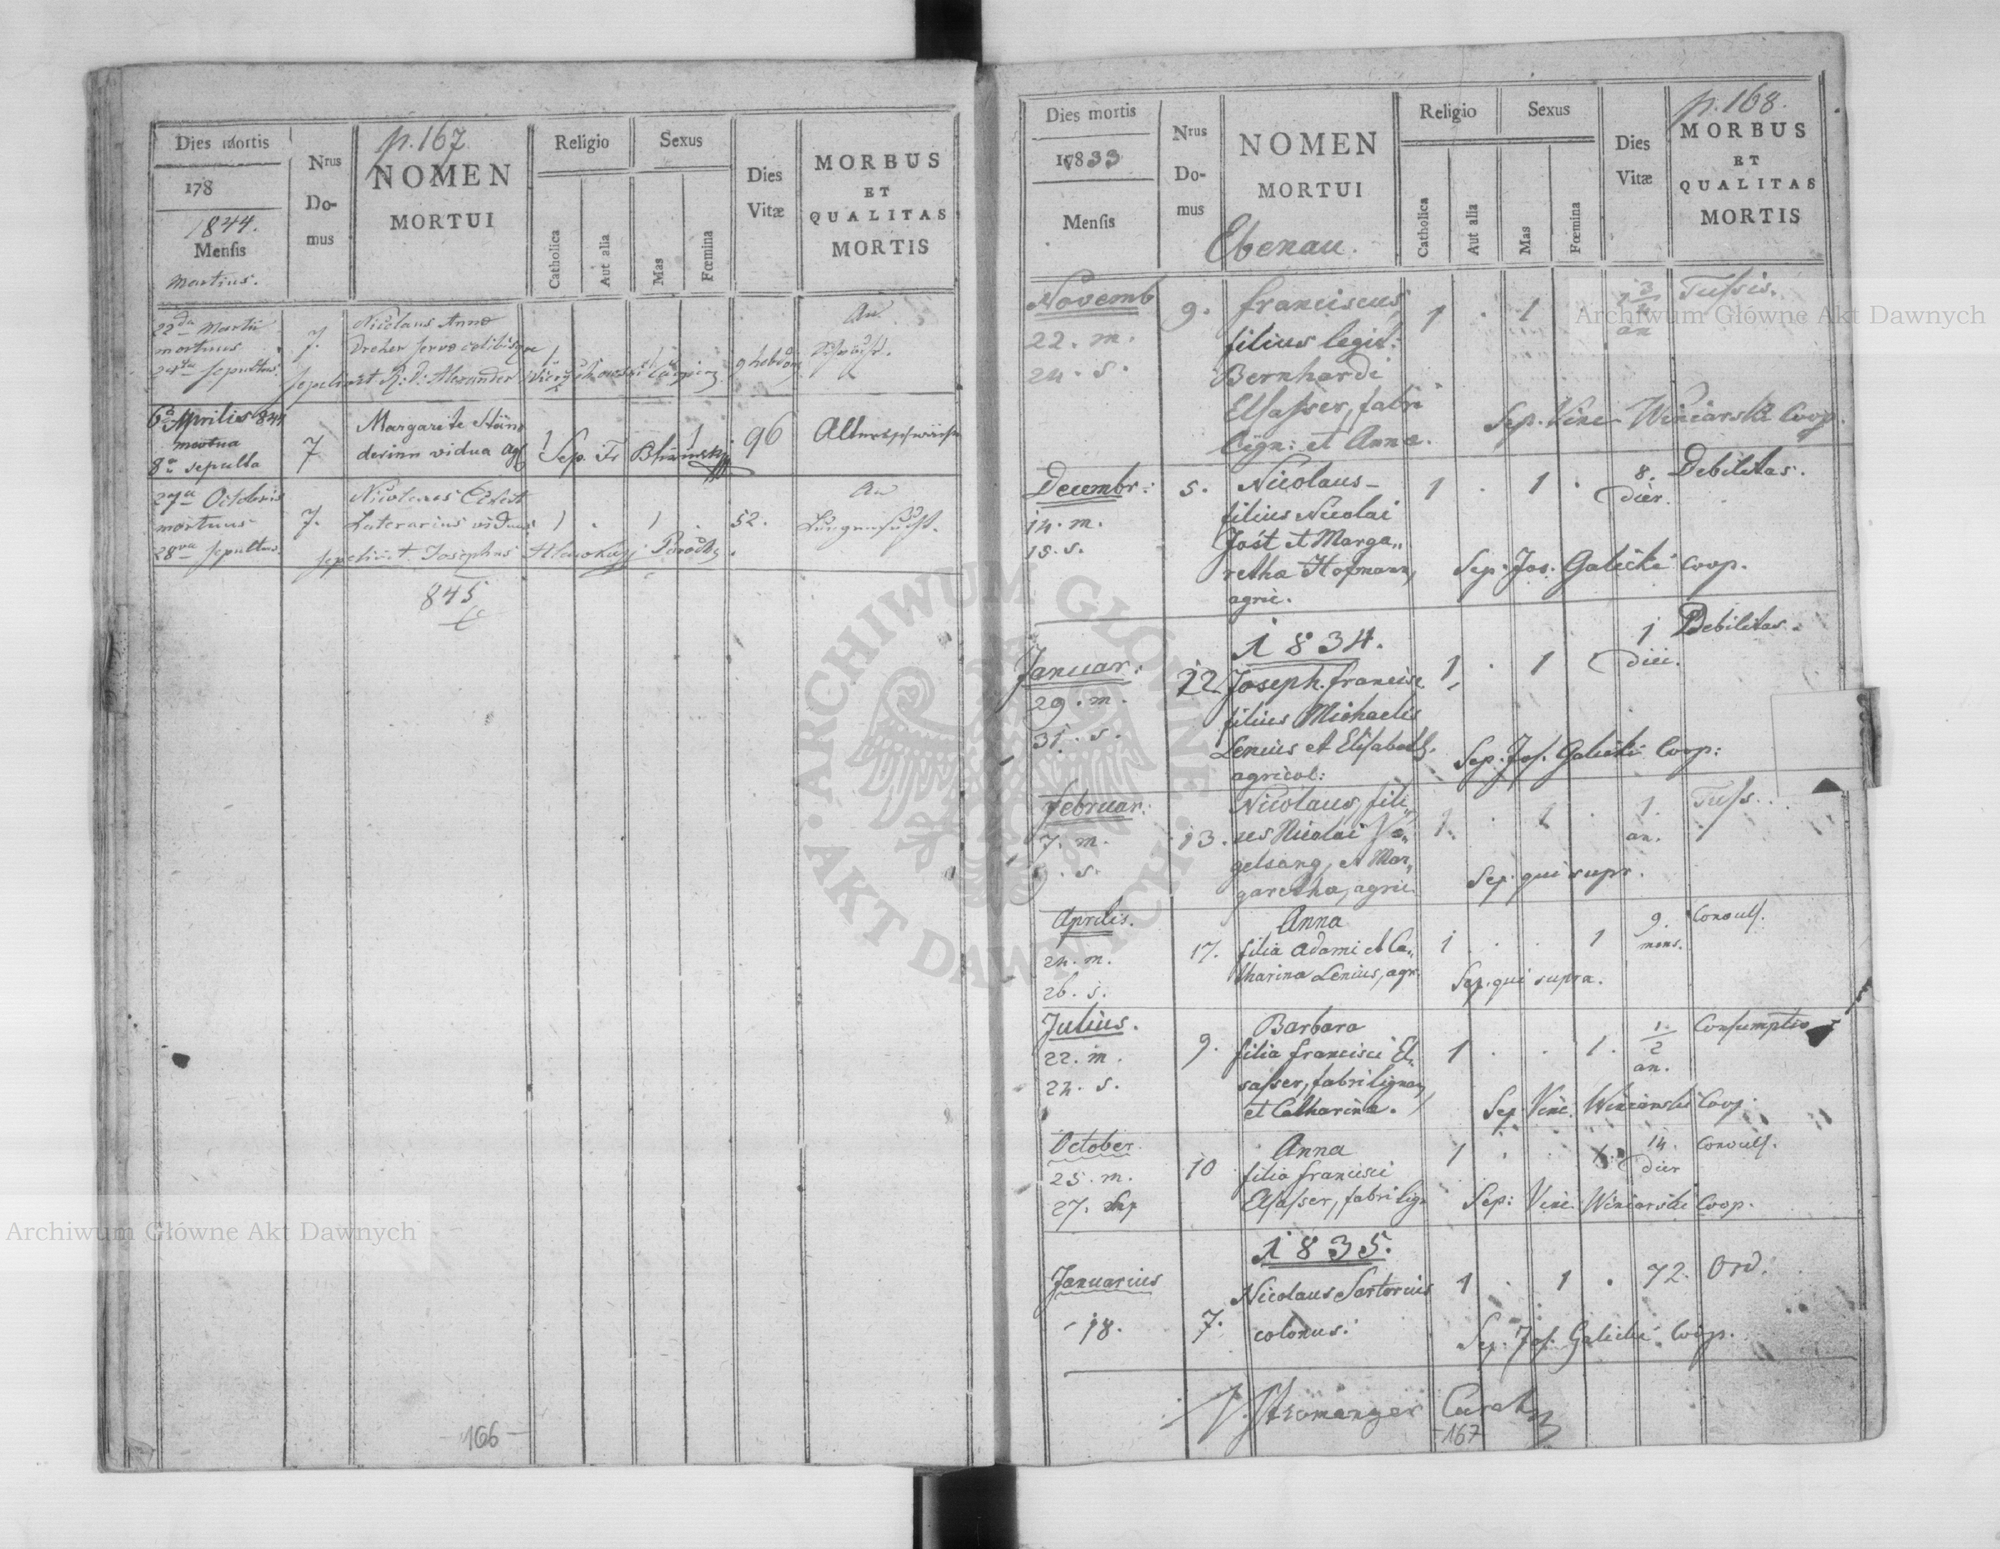 p. 167
Dies mortis
178
1844.
Mensis
Martius.
Nrus
Do-
mus
NOMEN
MORTUI
Religio
Catholica
Aut alia
Sexus
Mas
Fœmina
Dies
Vitæ
MORBUS
ET
QUALITAS
MORTIS
22da Martii
mortuus
24ta sepultus.
7.
Nicolaus Anno
Dreher servo
sepelivit R: D: Alexander
1
1
9 hebdom
An
6a Aprilis 844
mortua
8a sepulta
7
Margarete
derinn vidua agr
1
Sep. Fr
1
96
Altersschwäche
27a Octobris
mortuus
28va sepultus.
7.
Nicolaus
Laterarius viduus
1 . 1 .
52.
An
Lungensucht.
sepelivit Josephus Parochus.
845
166
p. 168.
Dies mortis
1833
Mensis
Nrus
Do-
mus
NOMEN
MORTUI
Ebenau.
Religio
Catholica
Aut alia
Sexus
Mas
Fœmina
Dies
Vitæ
MORBUS
ET
QUALITAS
MORTIS
Novemb
22. m.
24. s.
9.
Franciscus,
filius legit:
Bernhardi
Elsasser, fabri
lign: et Anna.
1 . 1
an
Tussis.
Sep. Vinc Winiarski Coop.
Decembr:
14. m.
15. s.
5.
Nicolaus
filius Nicolai
Jost et Marga„
retha Hofmann,
agric.
1 . 1 .
8.
dier.
Debilitas.
Sep: Jos. Galicki Coop.
1834.
Januar:
29. m.
31. s.
12
Joseph. Francisc
filius Michaelis
Lenius et Elisabeth.
agricol:
1 . 1
1
diei.
Debilitas.
Sep: Jos. Galicki Coop:
Februar:
7. m.
9. s.
13.
Nicolaus, fili„
us Nicolai Vo„
gelsang, et Mar„
garetha, agric
1. . 1 .
1.
an.
Tuss.
Sep. qui supr.
Aprilis.
24. m.
26. s.
17.
Anna
filia Adami et Ca„
tharina Lenius, agr.
1 . . 1
9.
mens.
Convuls.
Sep. qui supra.
Julius.
22. m.
24. s.
9.
Barbara
filia Francisci El„
sasser, fabri lignar,
et Catharina.
1 . . 1.
1/2
an.
Consumptio
Sep Vinc. Winiarski Coop.
October
25. m.
27. sep
10
Anna
filia Francisci
Elsasser, fabri lig.
1 . . 1.
14.
dier
Convuls.
Sep: Vinc. Winiarski Coop.
1835.
Januarius
18.
7.
Nicolaus Sartorius
colonus.
1 . 1 .
72.
Ord.
Sep. Jos. Galicki Coop.
167
Archiwum Główne Akt Dawnych
Archiwum Główne Akt Dawnych
ARCHIWUM GŁÓWNE
AKT DAWNYCH